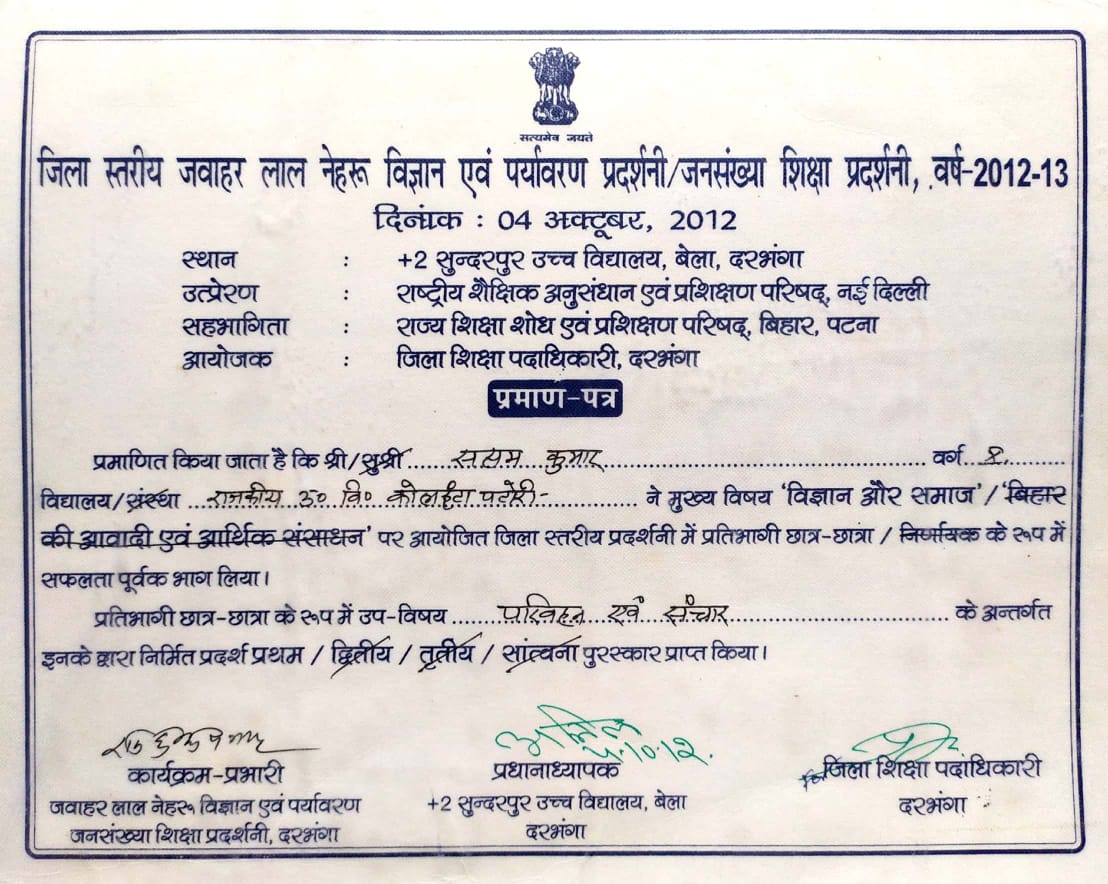 सत्यमेव जयते
जिला स्तरीय जवाहर लाल नेहरू विज्ञान एवं पर्यावरण प्रदर्शनी/जनसंख्या शिक्षा प्रदर्शनी, वर्ष-2012-13
दिनांक : 04 अक्टूबर, 2012
स्थान : +2 सुन्दरपुर उच्च विद्यालय, बेला, दरभंगा
उत्प्रेरण : राष्ट्रीय शैक्षिक अनुसंधान एवं प्रशिक्षण परिषद्, नई दिल्ली
सहभागिता : राज्य शिक्षा शोध एवं प्रशिक्षण परिषद्, बिहार, पटना
आयोजक : जिला शिक्षा पदाधिकारी, दरभंगा
प्रमाण-पत्र
प्रमाणित किया जाता है कि श्री/सुश्री कुमार वर्ग 8
विद्यालय/संस्था राजकीय उ० वि० ने मुख्य विषय 'विज्ञान और समाज' / 'बिहार
की आवादी एवं आर्थिक संसाधन' पर आयोजित जिला स्तरीय प्रदर्शनी में प्रतिभागी छात्र-छात्रा / निर्णायक के रूप में
सफलता पूर्वक भाग लिया।
प्रतिभागी छात्र-छात्रा के रूप में उप-विषय परिवहन एवं संचार के अन्तर्गत
इनके द्वारा निर्मित प्रदर्श प्रथम / द्वितीय / तृतीय / सांत्वना पुरस्कार प्राप्त किया।
कार्यक्रम-प्रभारी प्रधानाध्यापक जिला शिक्षा पदाधिकारी
जवाहर लाल नेहरू विज्ञान एवं पर्यावरण +2 सुन्दरपुर उच्च विद्यालय, बेला दरभंगा
जनसंख्या शिक्षा प्रदर्शनी, दरभंगा दरभंगा